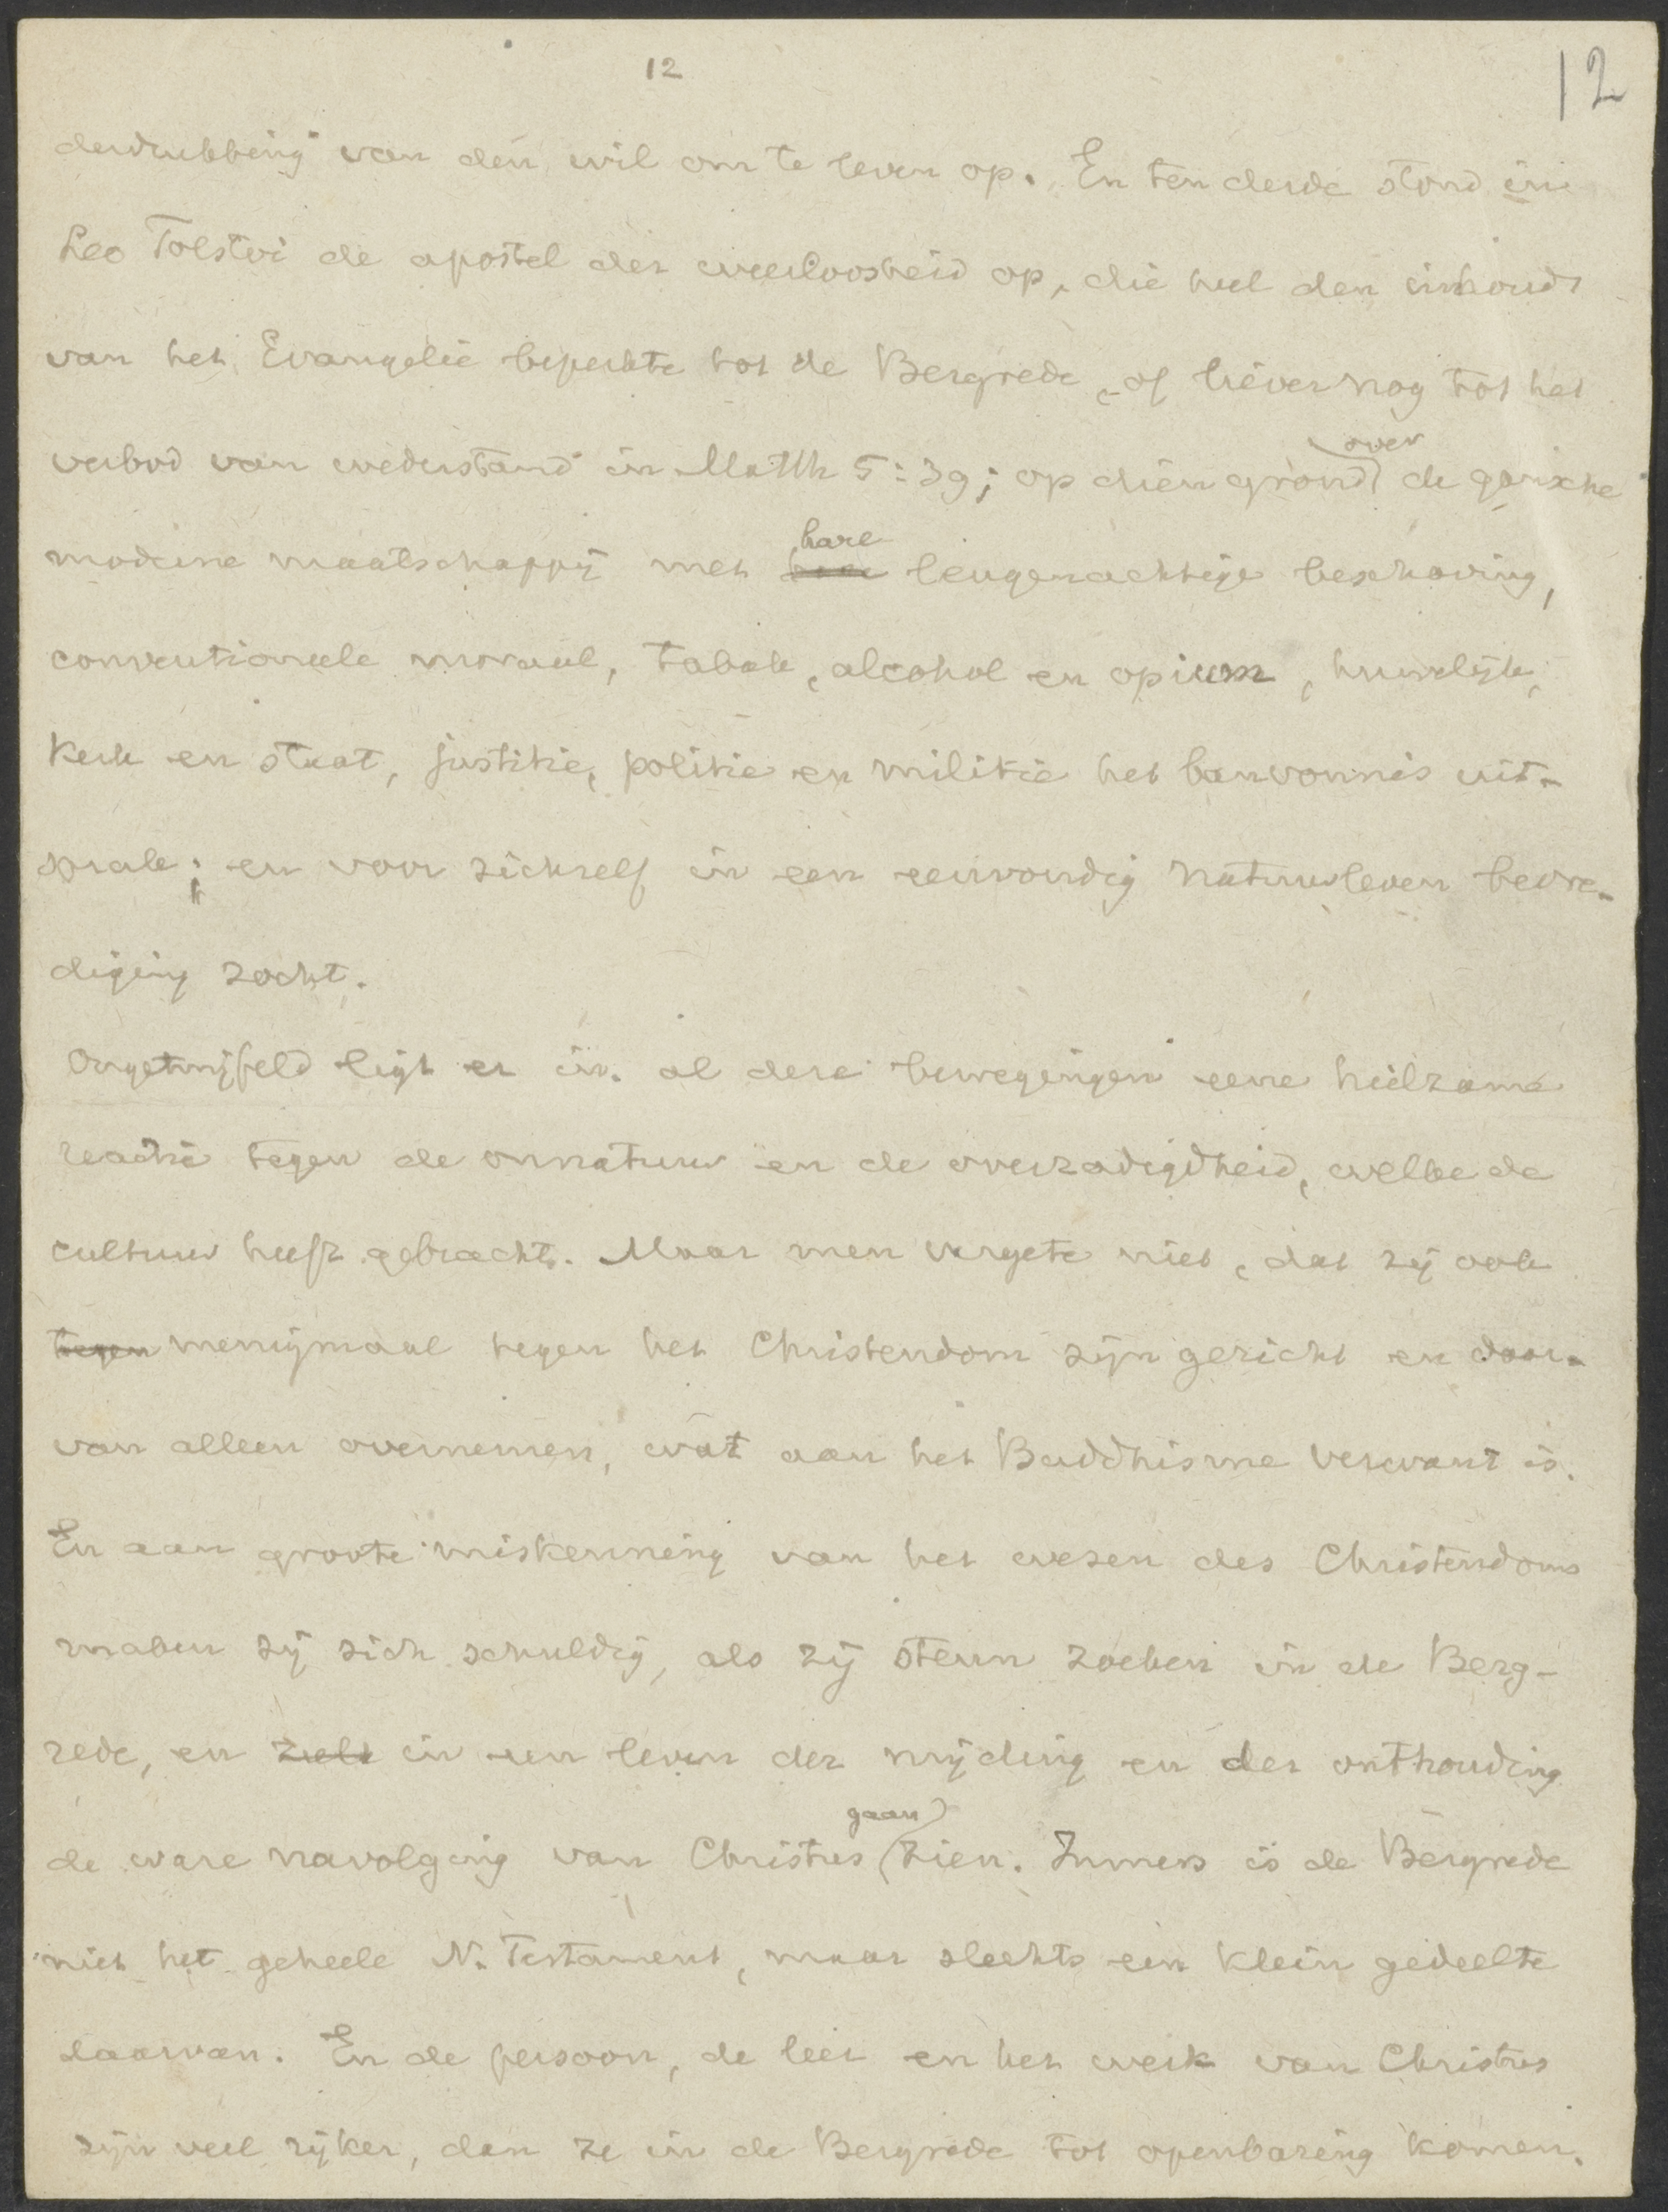 12
12
derdrukking van den wil om te leven op. En ten derde stond in
Leo Tolstoi de apostel der weerloosheid op, die heel den inhoud
van het Evangelie beperkte tot de Bergrede, of liever nog tot het
verbod van wederstand in Matth 5:39; op dien grond over de gansche
moderne maatschappij met hare leugenachtige beschaving,
conventioneele moraal, tabak, alcohol en opium, huwelijk,
kerk en staat, justitie, politie en militie het banvonnis uit-
sprak; en voor zichzelf in een eenvoudig natuurleven bevre-
diging zocht.
Ongetwijfeld ligt er in al deze bewegingen eene heilzame
reactie tegen de onnatuur en de overzadigdheid, welke de
cultuur heeft gebracht. Maar men vergete niet, dat zij ook
tegen menigmaal tegen het Christendom zijn gericht en daar-
van alleen overnemen, wat aan het Buddhisme verwant is.
En aan groote miskenning van het wezen des Christendoms
maken zij zich schuldig, als zij steun zoeken in de Berg-
rede, en in een leven der mijding en der onthouding
de ware navolging van Christus gaan zien. Immers is de Bergrede
niet het geheele N. Testament, maar slechts een klein gedeelte
daarvan. En de persoon, de leer en het werk van Christus
zijn veel rijker, dan ze in de Bergrede tot openbaring komen.